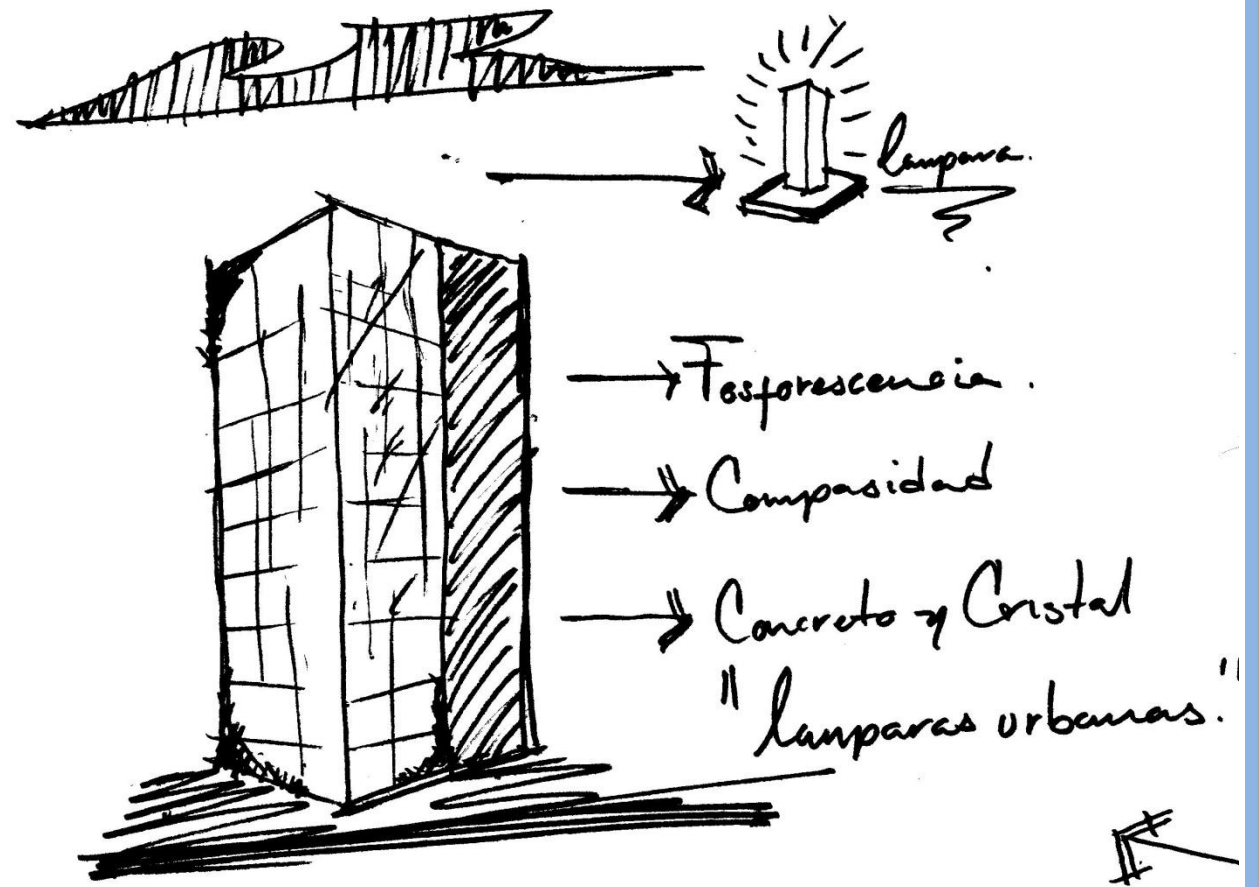 lampara.
Fosforescencia.
Compasidad
Concreto y Cristal
"lamparas urbanas."